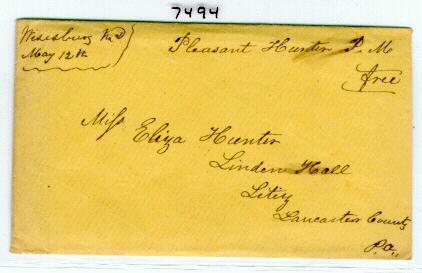 7494
Wesesburg Md
May 12th
Pleasant Hunter P. M
free
Miss Eliza Hunter
Linden Hall
Litiz
Lancaster County
Pa.,